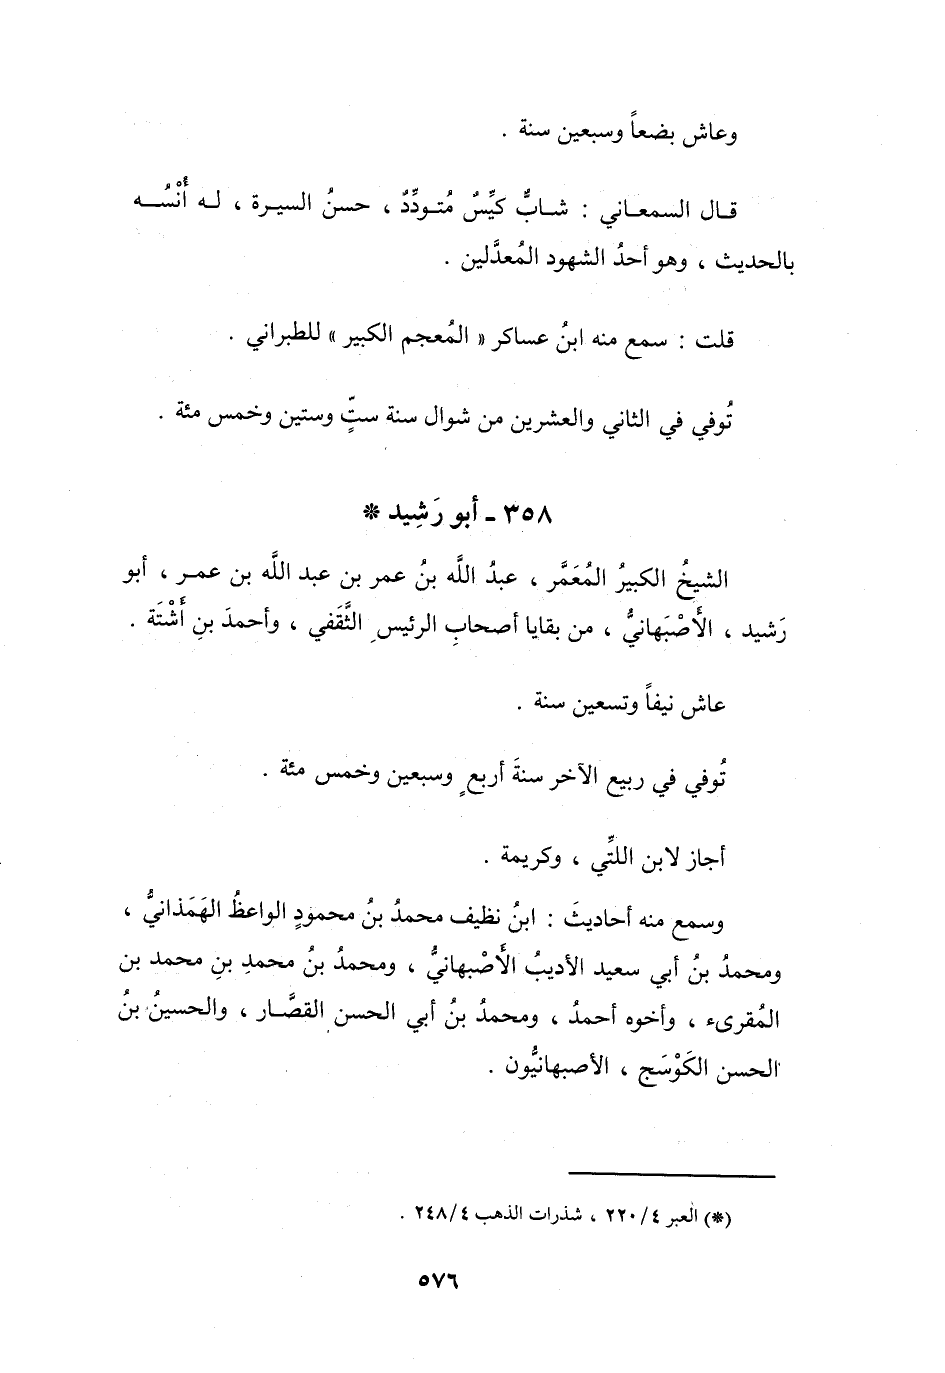 وعاش بضعاً وسبعين سنة .
قال السمعاني : شابٌّ كيِّسٌ مُتودِّدٌ ، حسنُ السيرة ، له أُنْسُه
بالحديث ، وهو أحدُ الشهود المُعدَّلين .
قلت : سمع منه ابنُ عساكر « المُعجم الكبير » للطبراني .
تُوفي في الثاني والعشرين من شوال سنة ستٍّ وستين وخمس مئة .
٣٥٨ - أبو رَشِيد *
الشيخُ الكبيرُ المُعَمَّر ، عبدُ اللَّه بنُ عمر بن عبد اللَّه بن عمر ، أبو
رَشيد ، الأَصْبَهانيُّ ، من بقايا أصحابِ الرئيسِ الثَّقَفي ، وأحمدَ بنِ أَشْتَة .
عاش نيفاً وتسعين سنة .
تُوفي في ربيع الآخر سنةَ أربعٍ وسبعين وخمس مئة .
أجاز لابن اللتِّي ، وكريمة .
وسمع منه أحاديثَ : ابنُ نظيف محمدُ بنُ محمودٍ الواعظُ الهَمَذانيُّ ،
ومحمدُ بنُ أبي سعيد الأديبُ الأَصْبهانيُّ ، ومحمدُ بنُ محمدِ بنِ محمد بن
المُقرىء ، وأخوه أحمدُ ، ومحمدُ بنُ أبي الحسن القصَّار ، والحسينُ بنُ
الحسن الكَوْسَج ، الأصبهانيُّون .
(*) العبر ٤/٢٢٠ ، شذرات الذهب ٤/٢٤٨ .
٥٧٦